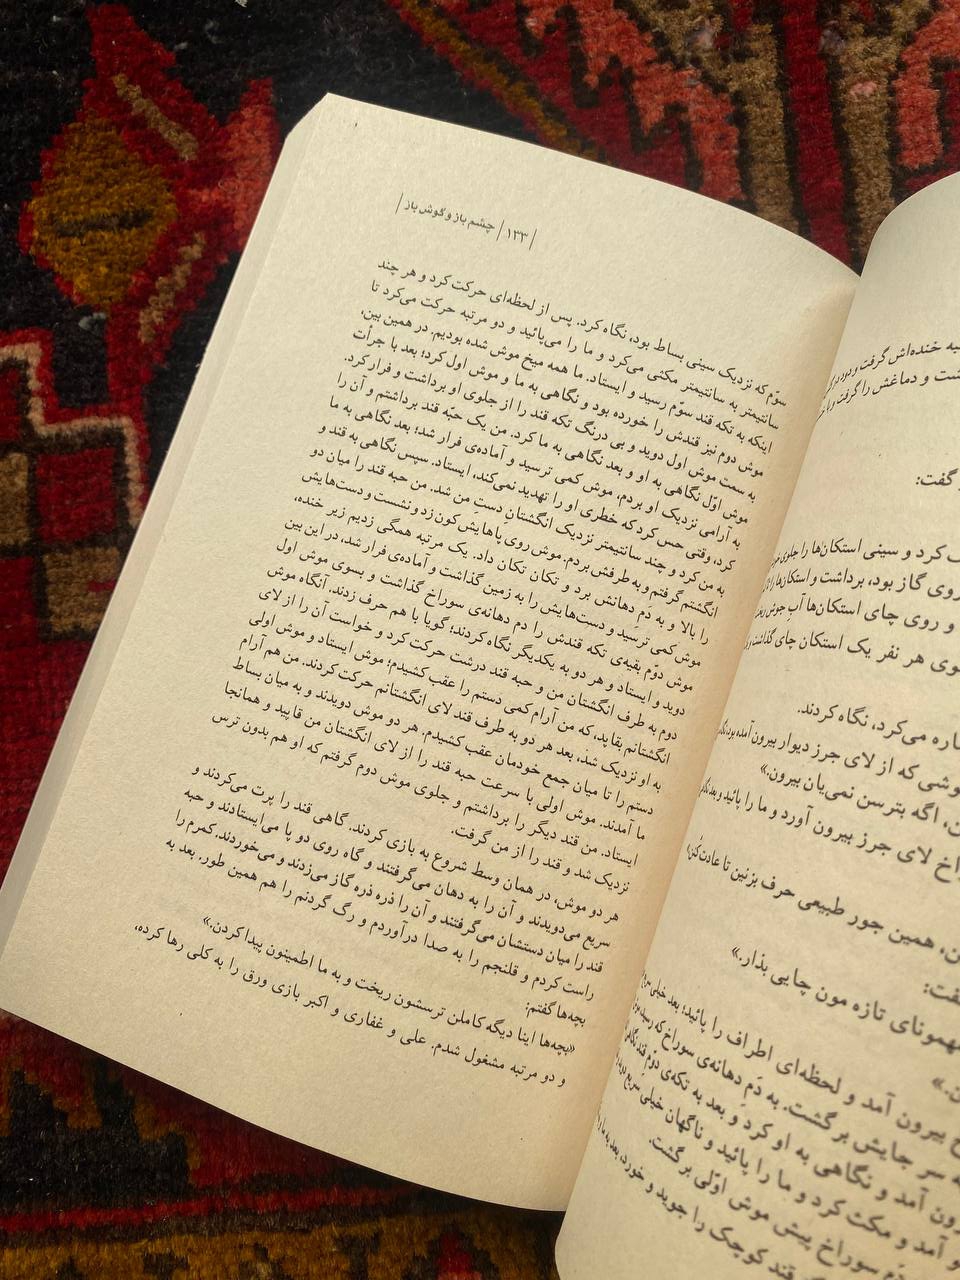 | ۱۳۳ | چشم باز و گوش باز |
سوّم که نزدیک سینی بساط بود، نگاه کرد. پس از لحظه‌ای حرکت کرد و هر چند
سانتیمتر به سانتیمتر مکثی می‌کرد و ما را می‌پائید و دو مرتبه حرکت می‌کرد تا
اینکه به تکه قند سوّم رسید و ایستاد. ما همه میخ موش شده بودیم. در همین بین،
موش دوم نیز قندش را خورده بود و نگاهی به ما و موش اول کرد؛ بعد با جرأت
به سمت موش اول دوید و بی درنگ تکه قند را از جلوی او برداشت و فرار کرد.
موش اوّل نگاهی به او و بعد نگاهی به ما کرد. من یک حبّه قند برداشتم و آن را
به آرامی نزدیک او بردم، موش کمی ترسید و آماده‌ی فرار شد؛ بعد نگاهی به ما
کرد، وقتی حس کرد که خطری او را تهدید نمی‌کند، ایستاد. سپس نگاهی به قند و
به من کرد و چند سانتیمتر نزدیک انگشتانِ دست من شد. من حبه قند را میان دو
انگشتم گرفتم و به طرفش بردم. موش روی پاهایش کون زد و نشست و دست‌هایش
را بالا و به دَمِ دهانش برد و تکان تکان داد. یک مرتبه همگی زدیم زیر خنده،
موش کمی ترسید و دست‌هایش را به زمین گذاشت و آماده‌ی فرار شد، در این بین
موش دوّم بقیه‌ی تکه قندش را دم دهانه‌ی سوراخ گذاشت و بسوی موش اول
دوید و ایستاد و هر دو به یکدیگر نگاه کردند؛ گویا با هم حرف زدند. آنگاه موش
دوم به طرف انگشتان من و حبه قند درشت حرکت کرد و خواست آن را از لای
انگشتانم بقاپد، که من آرام کمی دستم را عقب کشیدم؛ موش ایستاد و موش اولی
به او نزدیک شد، بعد هر دو به طرف قند لای انگشتانم حرکت کردند. من هم آرام
دستم را تا میان جمع خودمان عقب کشیدم. هر دو موش دویدند و به میان بساط
ما آمدند. موش اولی با سرعت حبه قند را از لای انگشتان من قاپید و همانجا
ایستاد. من قند دیگر را برداشتم و جلوی موش دوم گرفتم که او هم بدون ترس
نزدیک شد و قند را از من گرفت.
هر دو موش، در همان وسط شروع به بازی کردند. گاهی قند را پرت می‌کردند و
سریع می‌دویدند و آن را به دهان می‌گرفتند و گاه روی دو پا می‌ایستادند و حبه
قند را میان دستشان می‌گرفتند و آن را ذره ذره گاز می‌زدند و می‌خوردند. کمرم را
راست کردم و قلنجم را به صدا درآوردم و رگ گردنم را هم همین طور. بعد به
بچه‌ها گفتم:
«بچه‌ها اینا دیگه کاملن ترسشون ریخت و به ما اطمینون پیدا کردن.»
و دو مرتبه مشغول شدم. علی و غفاری و اکبر بازی ورق را به کلی رها کرده،
به خنده‌اش گرفت و دود
شت و دماغش را گرفت و با
گفت:
کرد و سینی استکان‌ها را جلوی
روی گاز بود، برداشت و استکان‌ها را
و روی چای استکان‌ها آبِ جوش
وی هر نفر یک استکان چای گذاشت
می‌کرد، نگاه کردند.
موشی که از لای جرز دیوار بیرون آمده بود،
اگه بترسن نمی‌یان بیرون.»
لای جرز بیرون آورد و ما را پائید و بعد
همین جور طبیعی حرف بزنین تا عادت
مهمونای تازه مون چایی بذار.»
بیرون آمد و لحظه‌ای اطراف را پائید؛ بعد خیلی
سر جایش برگشت. به دَمِ دهانه‌ی سوراخ که رسید،
آمد و نگاهی به او کرد و بعد به تکه‌ی دوّمِ قند
و آمد و مکث کرد و ما را پائید و ناگهان خیلی سریع
سوراخ پیش موش اوّلی برگشت.
قند کوچک را جوید و خورد، بعد به ما